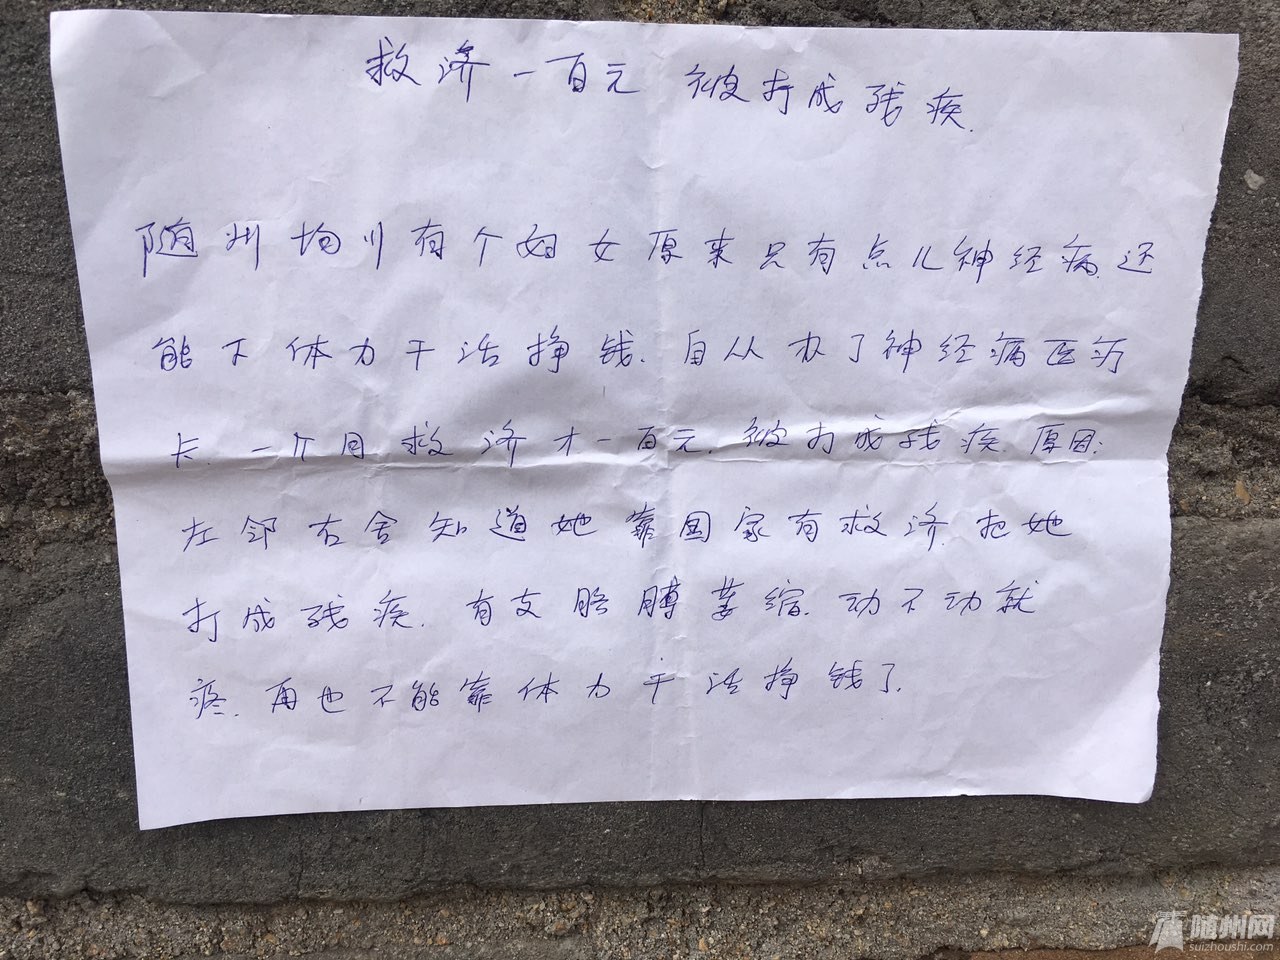 救济一百元 被打成残疾.
随州均川有个妇女原来只有点儿神经病.还
能下体力干活挣钱.自从办了神经病医疗
卡.一个月救济才一百元.被打成残疾.原因:
左邻右舍知道她靠国家有救济.把她
打成残疾.有支胳膊萎缩.动不动就
疼.再也不能靠体力干活挣钱了.
随州网
suizhoushi.com